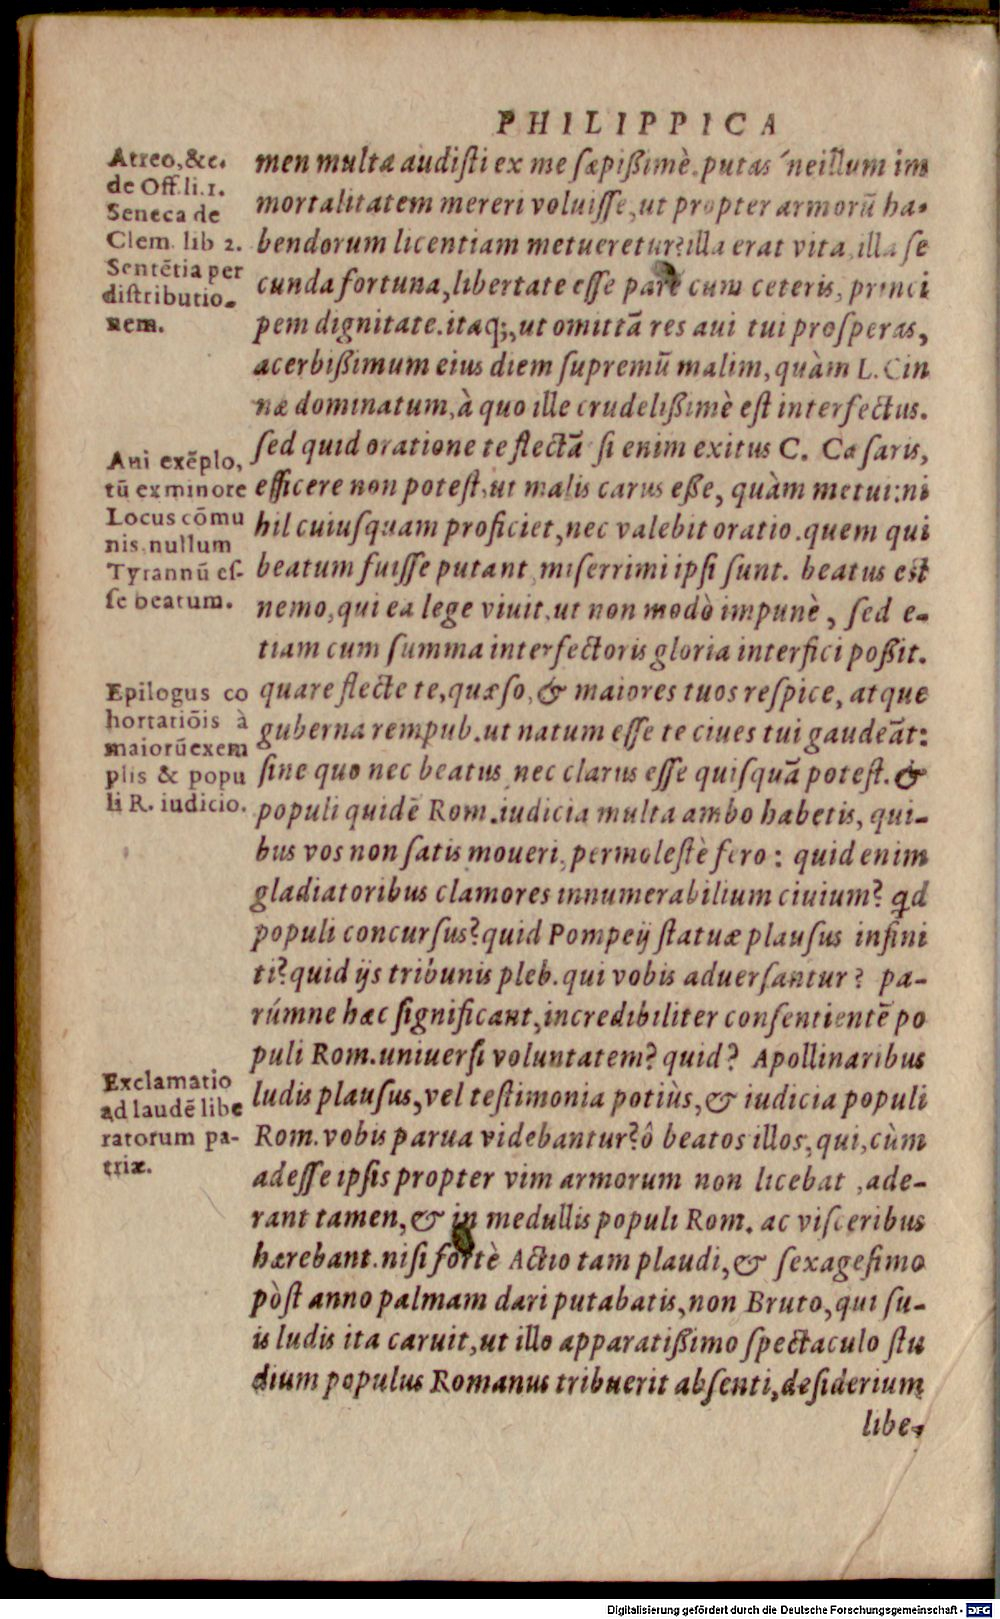 PHILIPPICA
Atreo, &c.
de Off. li. 1.
Seneca de
Clem. lib 2.
Sentētia per
distributio-
nem.
Aui exēplo,
tū ex minore
Locus cōmu
nis, nullum
Tyrannū es-
se beatum.
Epilogus co
hortatiōis à
maiorū exem
plis & popu
li R. iudicio.
Exclamatio
ad laudē libe
ratorum pa-
triæ.
men multa audisti ex me sæpißimè. putas 'ne illum im
mortalitatem mereri voluisse, ut propter armorū ha-
bendorum licentiam metueretur? illa erat vita, illa se
cunda fortuna, libertate esse parē cum ceteris, princi
pem dignitate. itaq;, ut omittā res aui tui prosperas,
acerbißimum eius diem supremū malim, quàm L. Cin
næ dominatum, à quo ille crudelißimè est interfectus.
sed quid oratione te flectā si enim exitus C. Cæsaris,
efficere non potest, ut malis carus eße, quàm metui: ni
hil cuiusquam proficiet, nec valebit oratio. quem qui
beatum fuisse putant, miserrimi ipsi sunt. beatus est
nemo, qui ea lege viuit, ut non modò impunè, sed e-
tiam cum summa interfectoris gloria interfici poßit.
quare flecte te, quæso, & maiores tuos respice, atque
guberna rempub. ut natum esse te ciues tui gaudeāt:
sine quo nec beatus, nec clarus esse quisquā potest. &
populi quidē Rom. iudicia multa ambo habetis, qui-
bus vos non satis moueri, permolestè fero: quid enim
gladiatoribus clamores innumerabilium ciuium? qd
populi concursus? quid Pompeij statuæ plausus infini
ti? quid ijs tribunis pleb. qui vobis aduersantur? pa-
rúmne hæc significant, incredibiliter consentientē po
puli Rom. uniuersi voluntatem? quid? Apollinaribus
ludis plausus, vel testimonia potiùs, & iudicia populi
Rom. vobis parua videbantur? ô beatos illos, qui, cùm
adesse ipsis propter vim armorum non licebat, ade-
rant tamen, & in medullis populi Rom. ac visceribus
hærebant. nisi fortè Actio tam plaudi, & sexagesimo
pòst anno palmam dari putabatis, non Bruto, qui su-
is ludis ita caruit, ut illo apparatißimo spectaculo stu
dium populus Romanus tribuerit absenti, desiderium
libe-
Digitalisierung gefördert durch die Deutsche Forschungsgemeinschaft - DFG